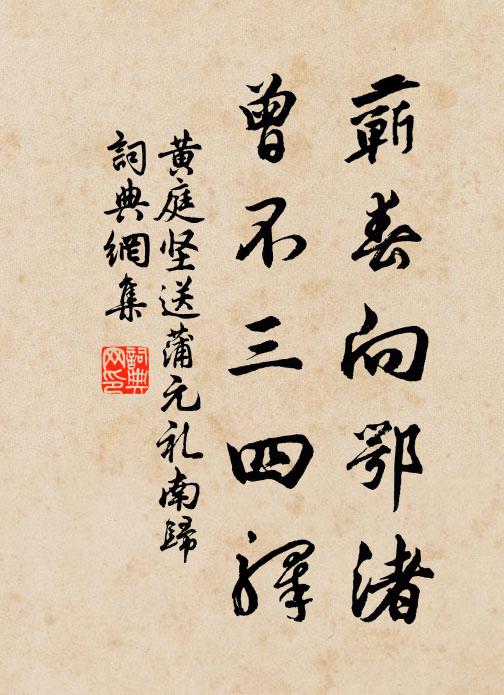 蘄春向鄂渚
曾不三四驛
黃庭坚送蒲元礼南歸
詞典網集
詞典网印